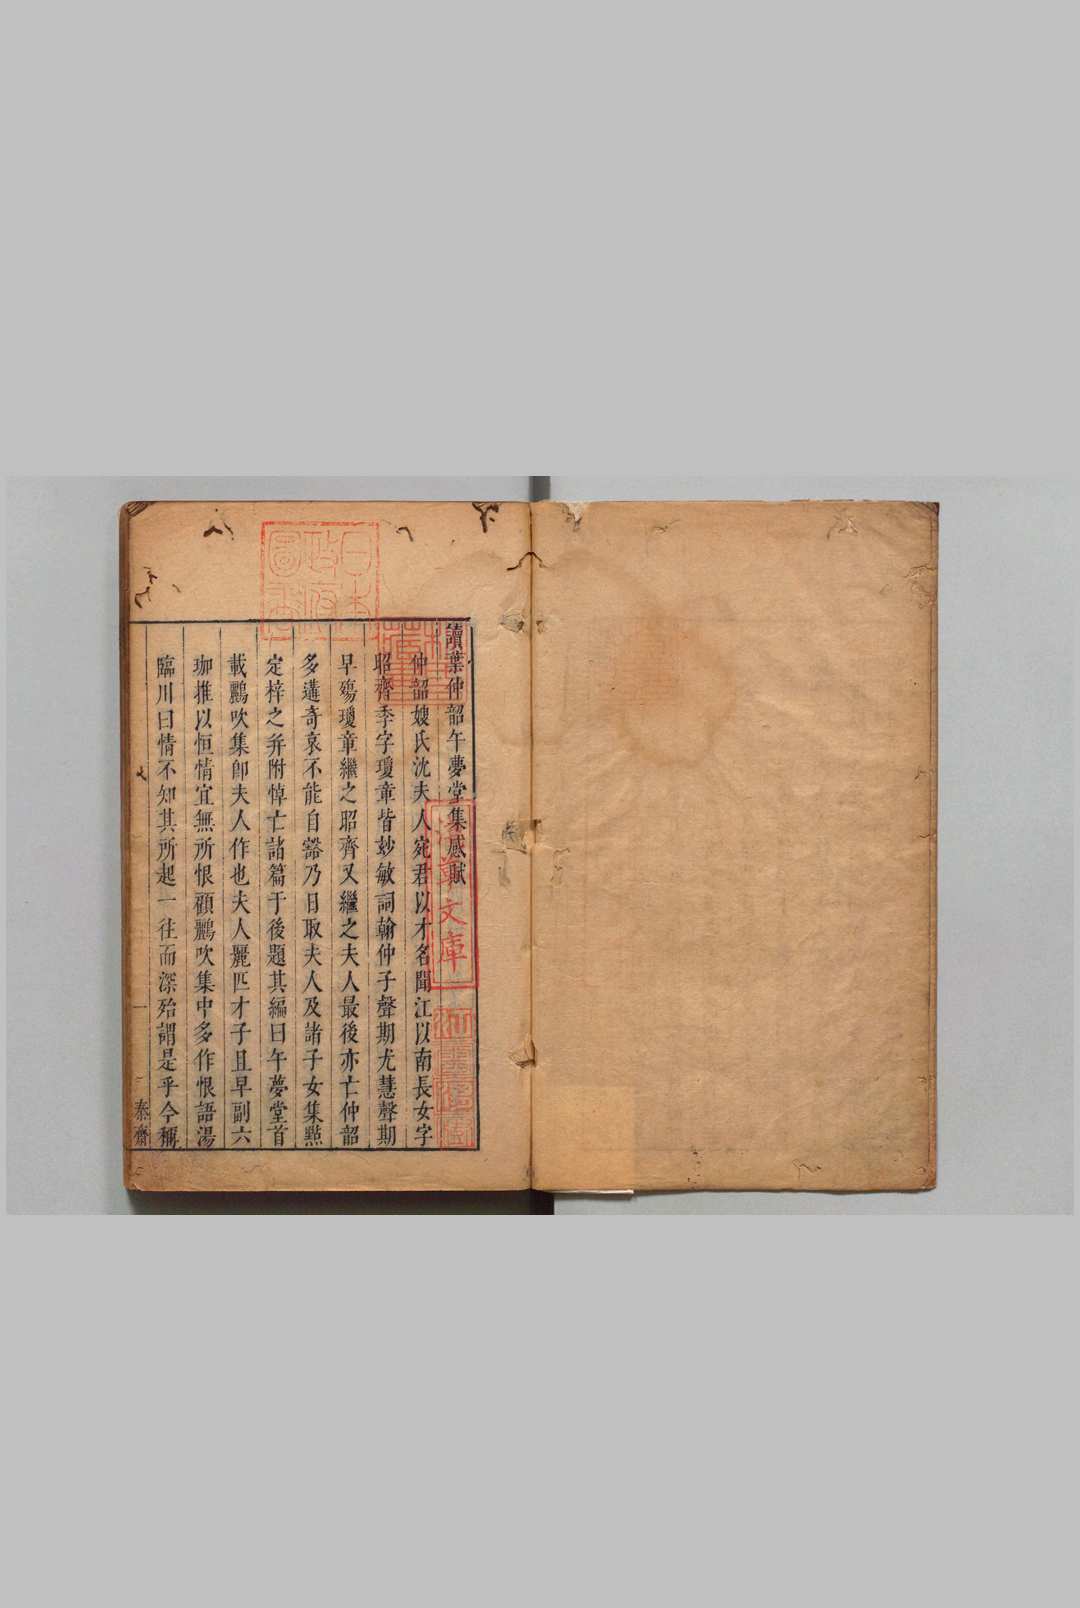 讀葉仲韶午夢堂集感賦
仲韶嫂氏沈夫人宛君以才名聞江以南長女字
昭齊季字瓊章皆妙敏詞翰仲子聲期尤慧聲期
早殤瓊章繼之昭齊又繼之夫人最後亦亡仲韶
多遘奇哀不能自豁乃日取夫人及諸子女集點
定梓之并附悼亡諸篇于後題其編曰午夢堂首
載鸝吹集卽夫人作也夫人麗匹才子且早副六
珈推以恒情宜無所恨顧鸝吹集中多作恨語湯
臨川曰情不知其所起一往而深殆謂是乎今稱
一
泰齋
日本政府圖書
淺草文庫